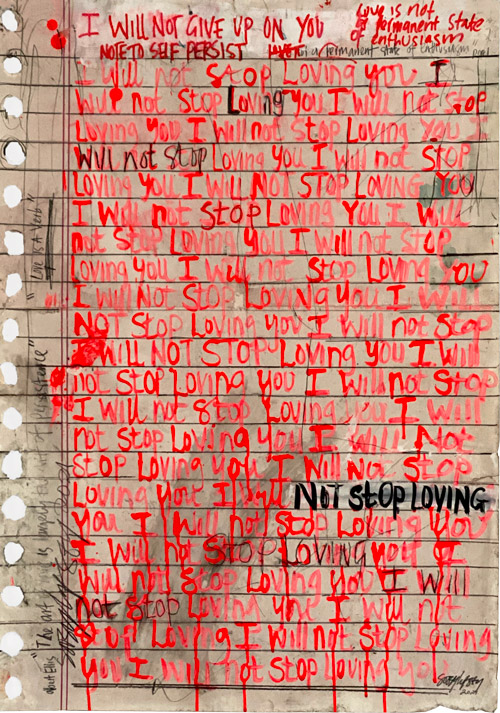 I WILL NOT GIVE UP ON YOU
Love is not
a permanent state
of enthusiasm
NOTE TO SELF PERSIST
not a permanent state of enthusiasm
I will not STOP Loving you I
will not STOP Loving you I will not STOP
Loving you I will not STOP Loving you I
Will not STOP Loving you I will not STOP
Loving you I Will NOT STOP LOVING YOU
I Will not STOP Loving You I will
not Stop Loving you I will not Stop
Loving you I will not Stop Loving YOU
I will Not Stop Loving you I will
NOT STOP Loving you I will not Stop
I Will NOT STOP Loving You I Will
not STOP Loving you I will not Stop
I Will not Stop Loving you I will
not Stop Loving you I will Not
STOP Loving you I Will Not Stop
Loving you I will NOT STOP LOVING
you I will not Stop Loving you
I will not STOP LOVING you I
will not Stop Loving you I will
not Stop Loving you I will not
Stop Loving I Will not Stop Loving
you I will not Stop Loving you
2021
"LOVE IS A VERB"
"The art of
Persistence"
2021